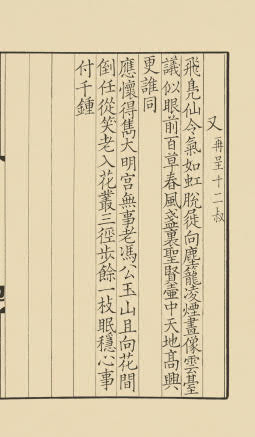 又 再呈十二叔
飛鳧仙令氣如虹脫屣向塵籠凌煙畫像雲臺
議似眼前百草春風盞裏聖賢壷中天地高興
更誰同
應懷得雋大明宮無事老馮公玉山且向花間
倒任從笑老入花叢三徑步餘一枝眠穩心事
付千鍾